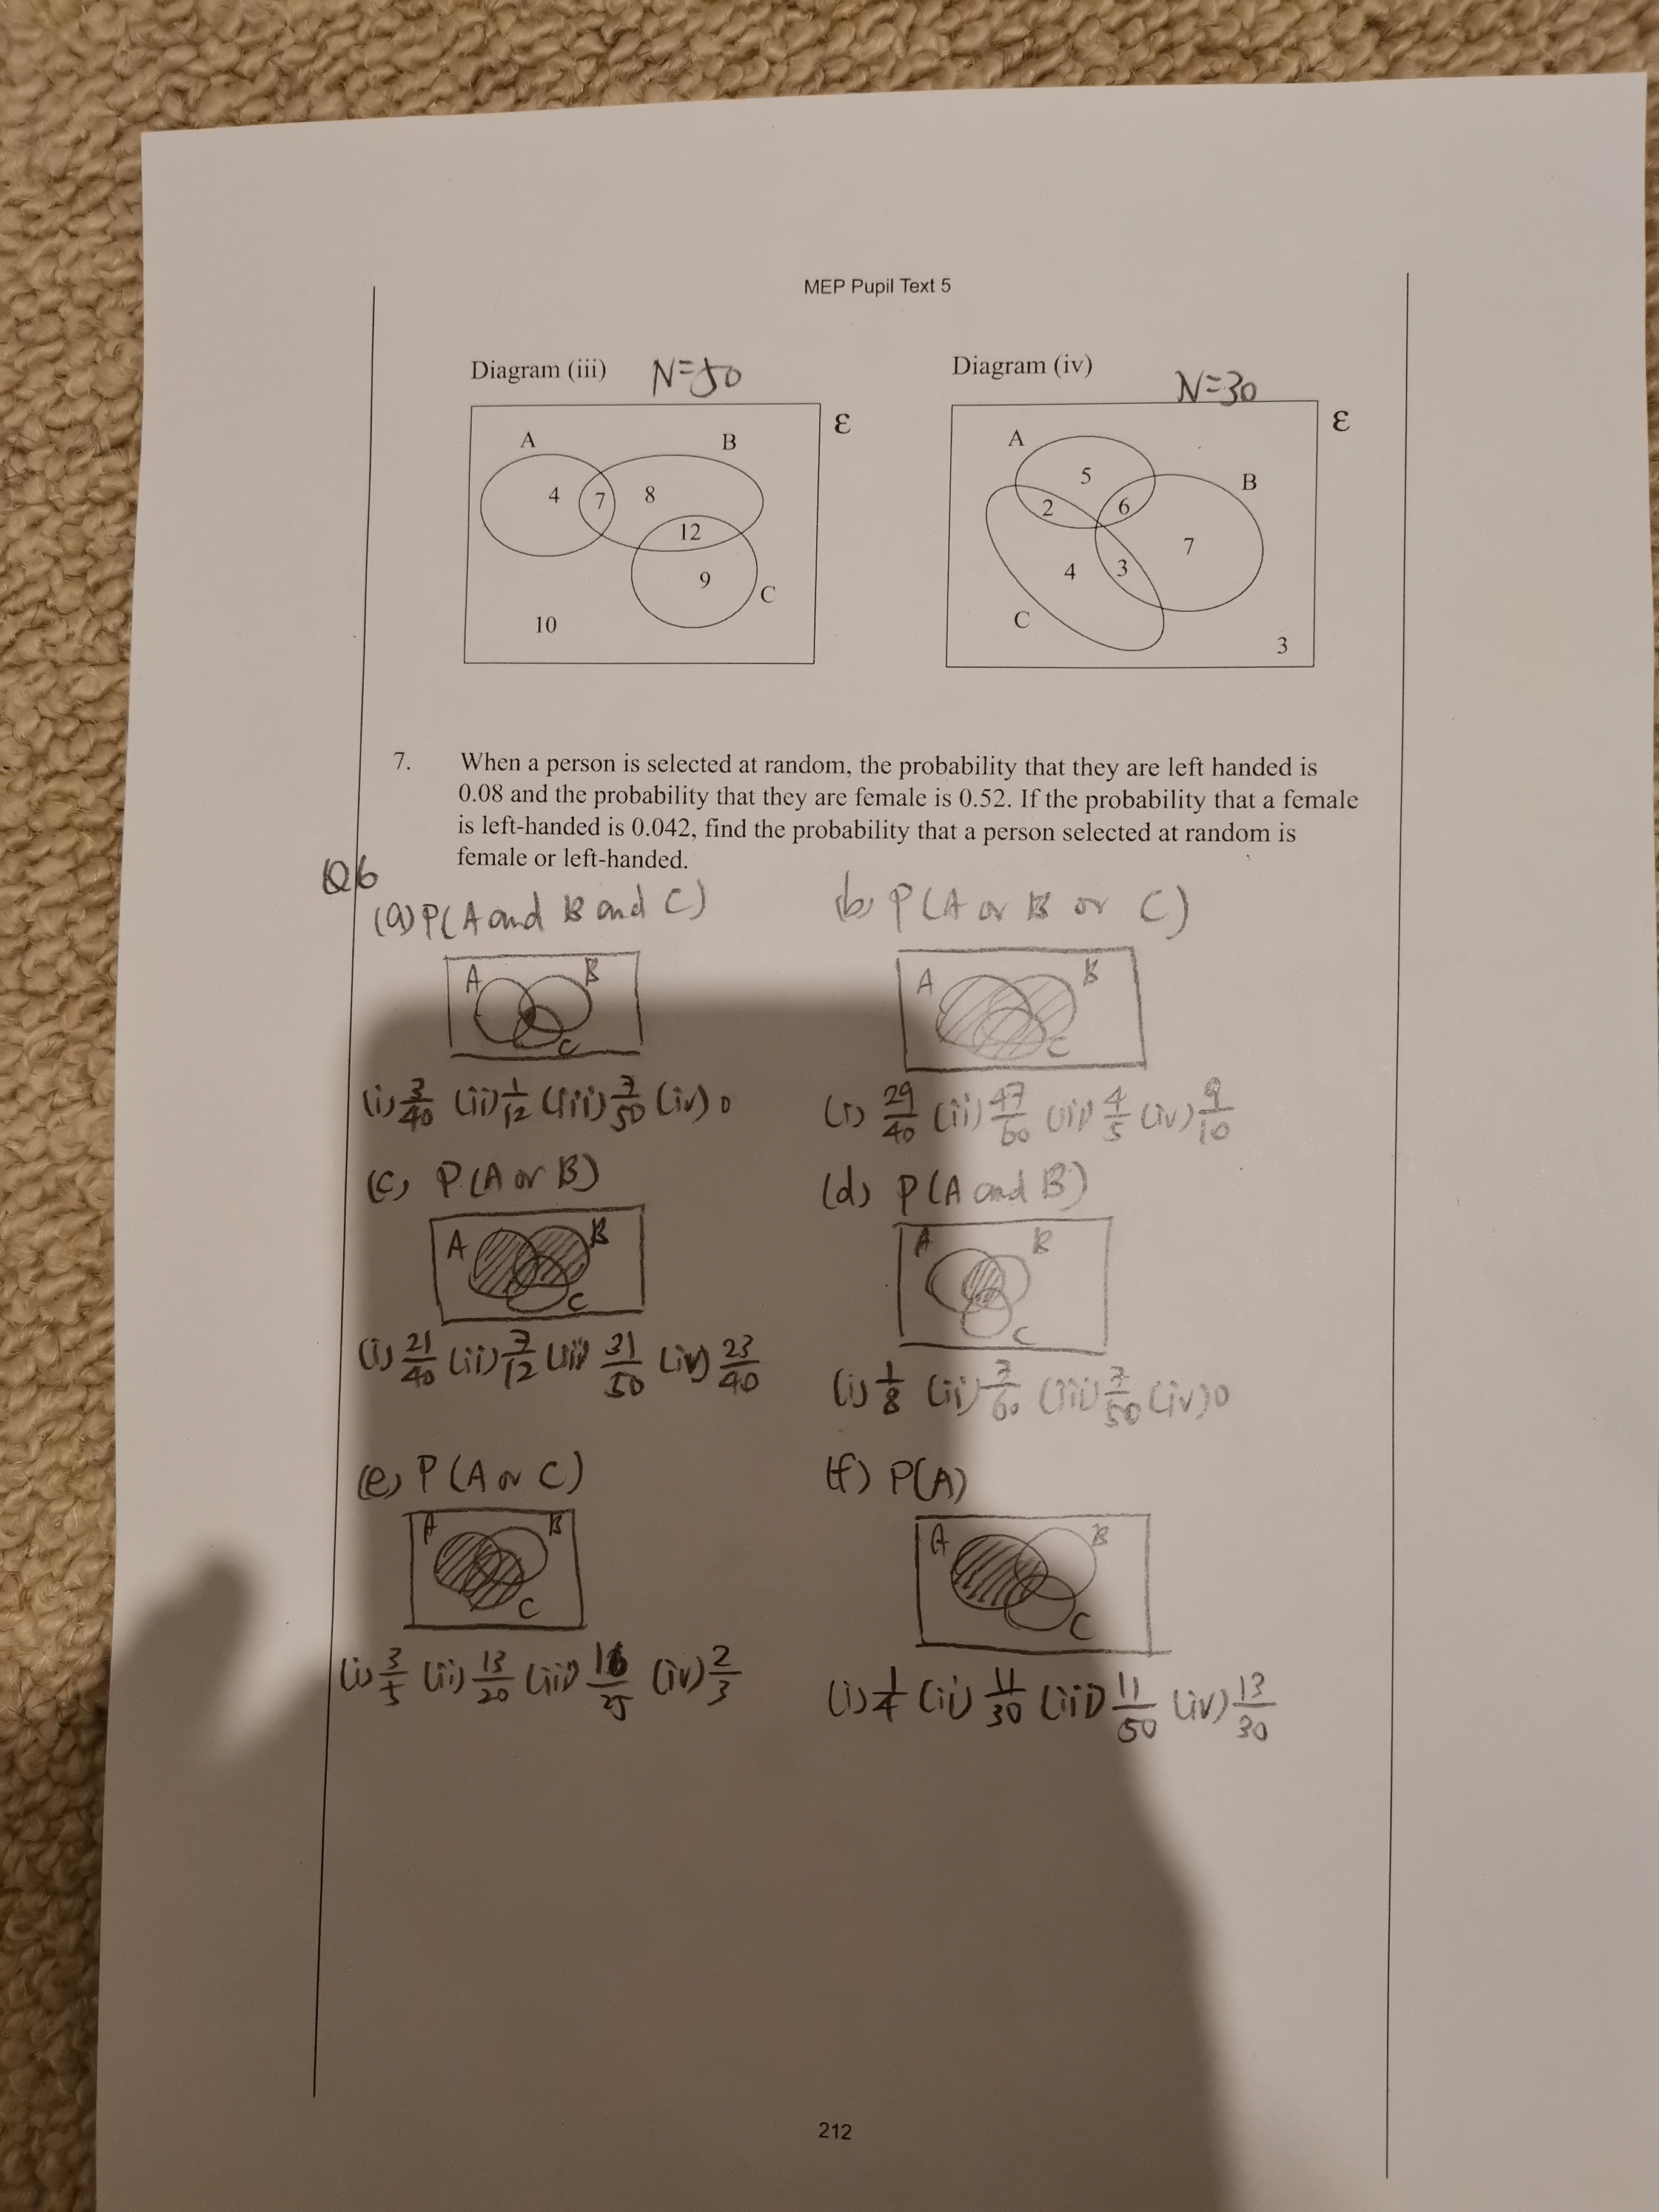 MEP Pupil Text 5
Diagram (iii) N=50
Diagram (iv) N=30
ε
A B
4 7 8
12
9
C
10
ε
A
5
B
2 6
7
4 3
C
3
7. When a person is selected at random, the probability that they are left handed is
0.08 and the probability that they are female is 0.52. If the probability that a female
is left-handed is 0.042, find the probability that a person selected at random is
female or left-handed.
Q6
(a) P(A and B and C)
A B
C
(i) 3/40 (ii) 1/12 (iii) 7/50 (iv) 0
(b) P(A or B or C)
A B
C
(i) 29/40 (ii) 47/60 (iii) 4/5 (iv) 9/10
(c) P(A or B)
A B
C
(i) 21/40 (ii) 7/12 (iii) 31/50 (iv) 23/40
(d) P(A and B)
A B
C
(i) 1/8 (ii) 7/60 (iii) 7/50 (iv) 0
(e) P(A or C)
A B
C
(i) 3/5 (ii) 13/20 (iii) 16/25 (iv) 2/3
(f) P(A)
A B
C
(i) 1/4 (ii) 11/30 (iii) 11/50 (iv) 13/30
212